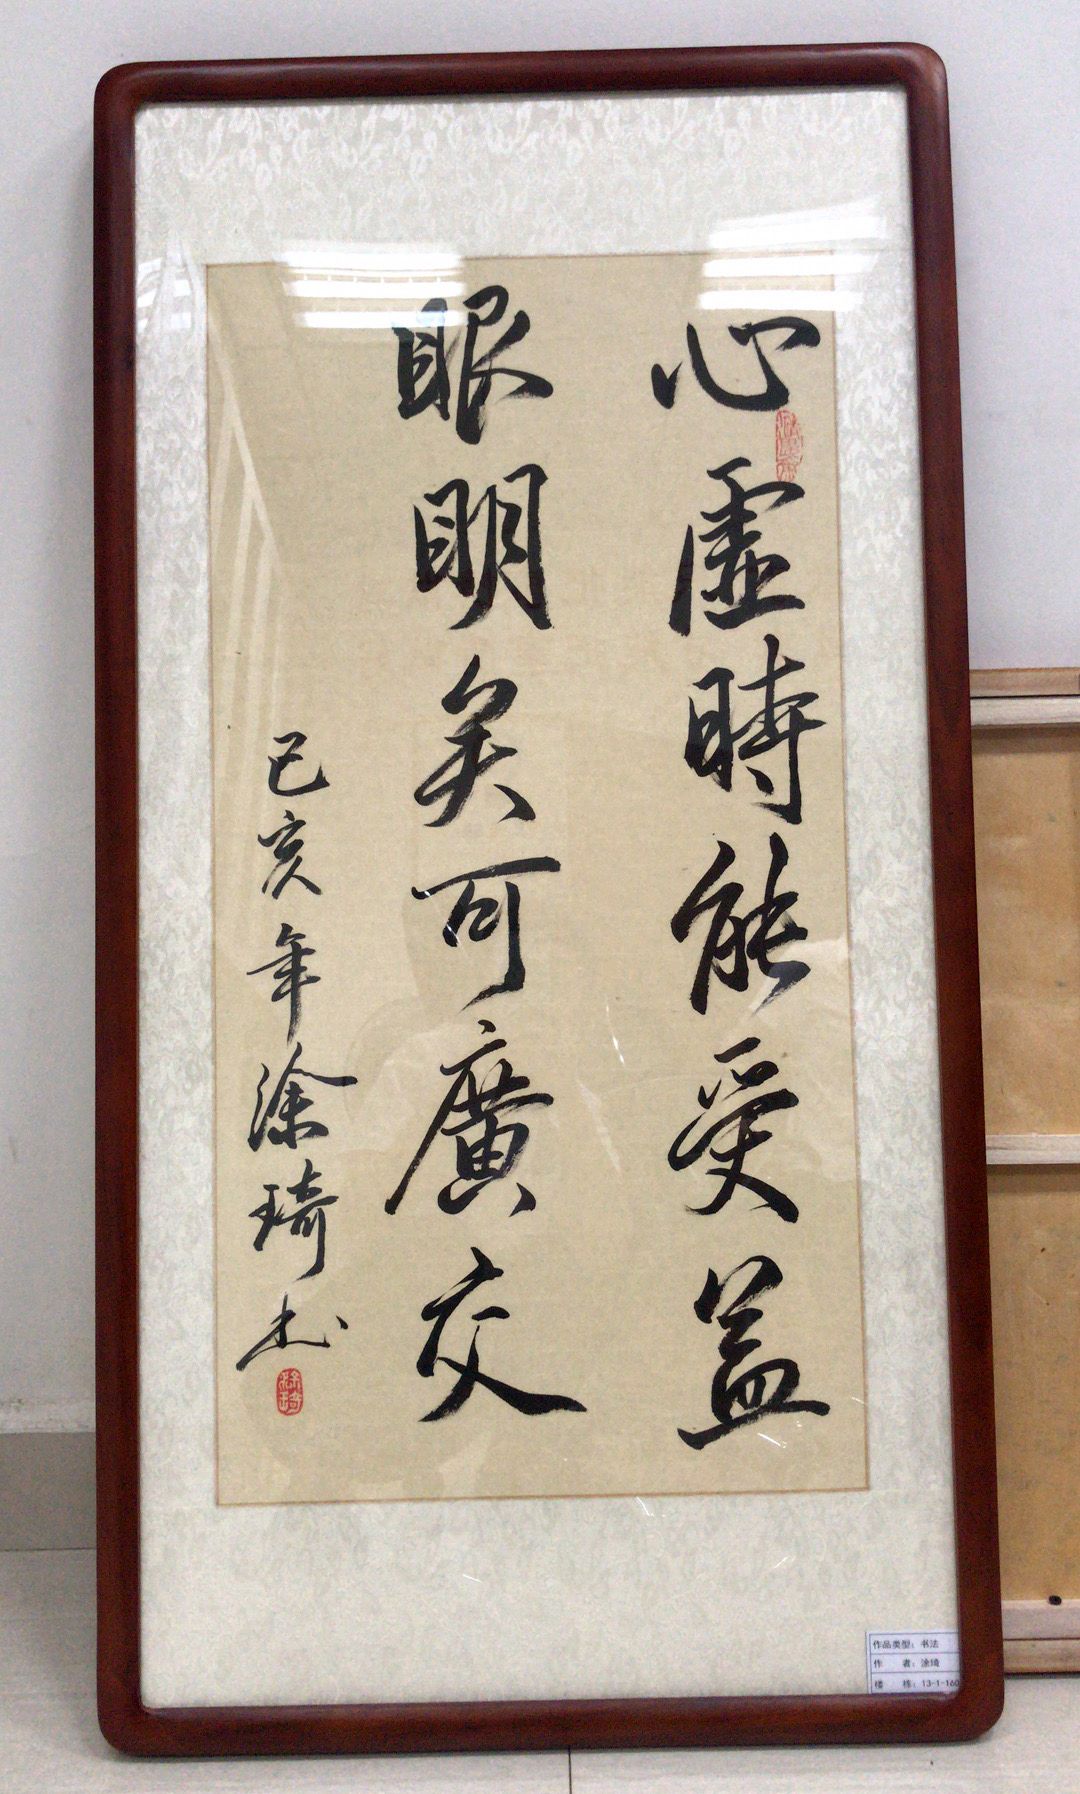 心虛時能受益
眼明矣可廣交
己亥年涂琦書
涂琦
作品类型：书法
作　者：涂琦
楼　栋：13-1-160